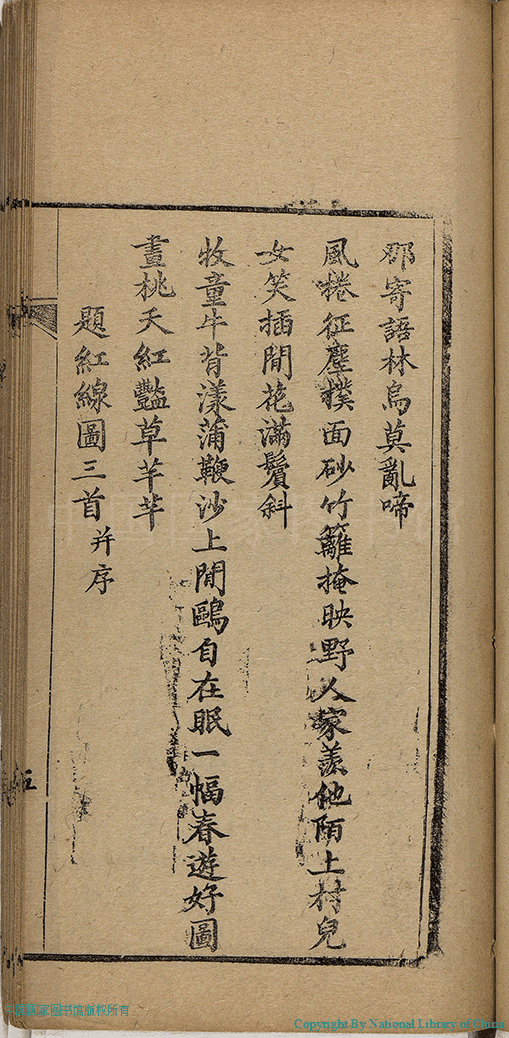 那寄語林烏莫亂啼
風捲征塵撲面砂竹籬掩映野人家羨他陌上村兒
女笑插閒花滿鬢斜
牧童牛背漾蒲鞭沙上閒鷗自在眠一幅春遊好圖
畫桃夭紅豔草芊芊
題紅線圖三首并序
五
国家图书馆版权所有
Copyright By National Library of China